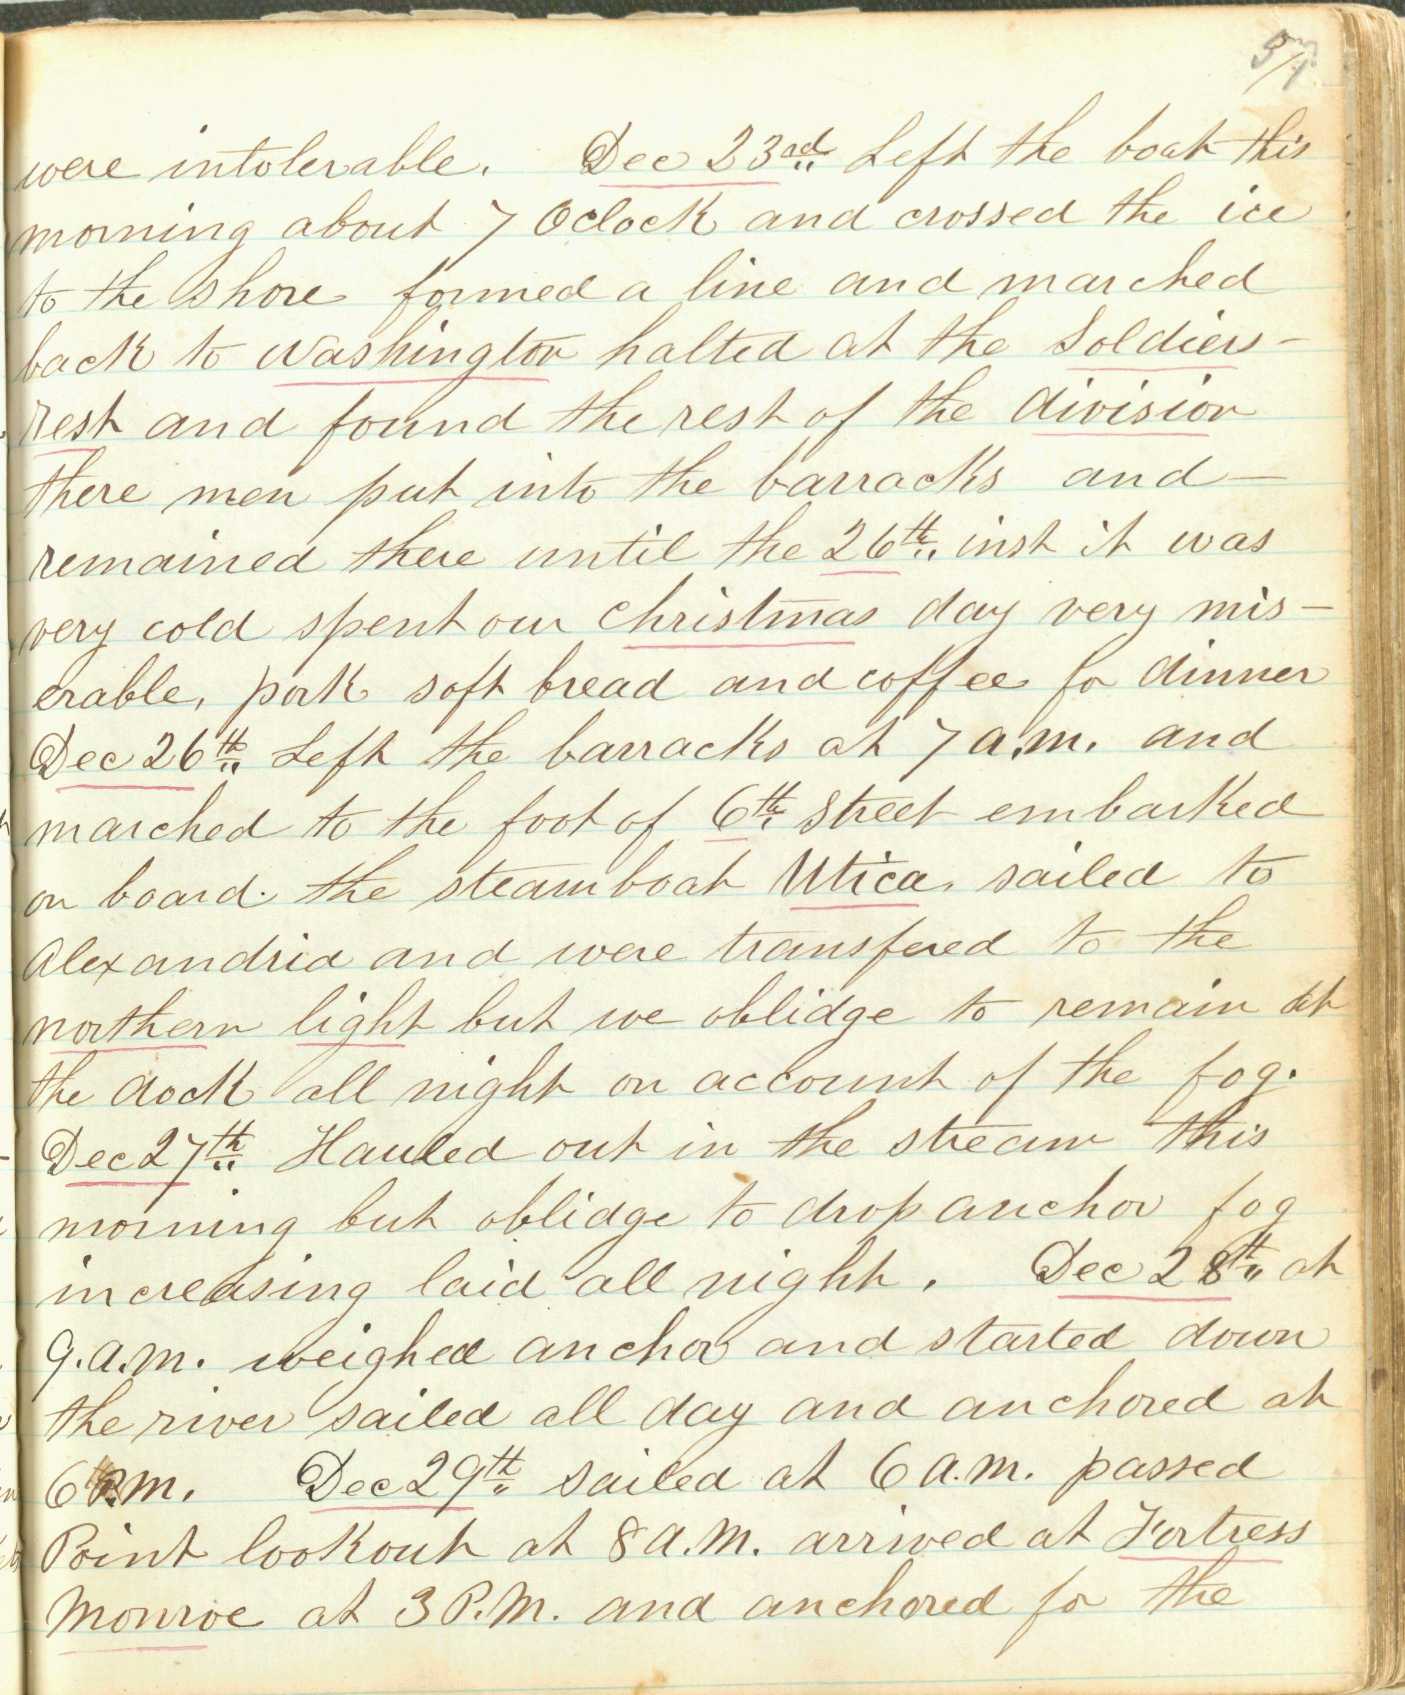 57
were intolerable. Dec 23rd Left the boat this
morning about 7 Oclock and crossed the ice
to the shore formed a line and marched
back to Washington halted at the Soldiers-
rest and found the rest of the division
there men put into the barracks and-
remained there until the 26th inst it was
very cold spent our Christmas day very mis-
erable, pork soft bread and coffee for dinner
Dec 26th Left the barracks at 7 a.m. and
marched to the foot of 6th Street embarked
on board. the steamboat Utica. sailed to
Alexandria and were transfered to the
northern light but we oblidge to remain at
the dock all night on account of the fog.
Dec 27th Hauled out in the stream this
morning but oblidge to drop anchor fog
increasing laid all night. Dec 28th at
9.a.m. weighed anchor and started down
the river sailed all day and anchored at
6 P.M. Dec 29th Sailed at 6 a.m. passed
Point lookout at 8 A.M. arrived at Fortress
Monroe at 3 P.M. and anchored for the